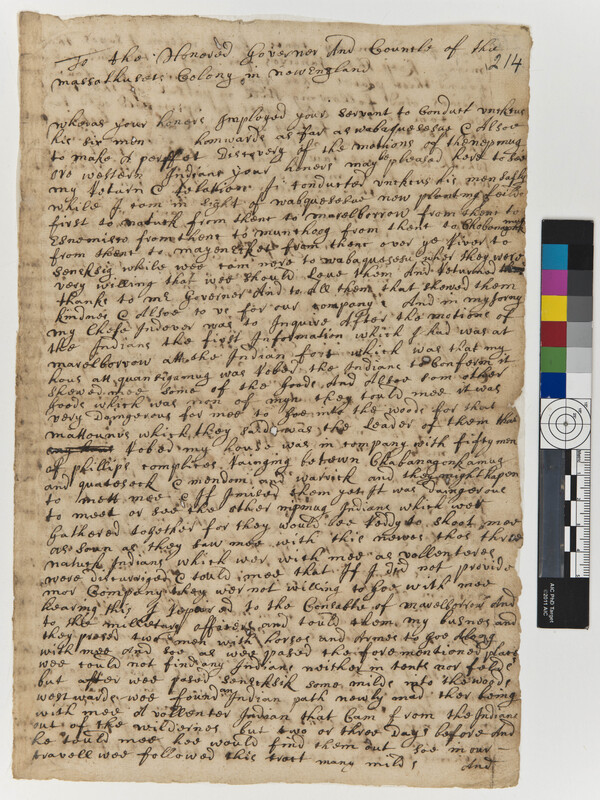 To the Honored Governer And Councle of the
214
massathusets Colony in newEngland
wheras your honers Imployed your servant to Conduct unckeus
his six men homwards as far as wabaquesesue & Alsoe
to make A perffet Discovery of the motions of the nepmug
ore western Indians your honers may pleased here to see
my Return & Relation I conducted unckeus his men safly
while I com in sight of wabquesesue new planting feilds
first to natuck from thenc to marelborrow from thenc to
Esnemisco from thenc to munthog from thenc to Chobonagonk
from thenc to mayenecket from thenc over ye River to
Senecksig while wee com nere to wabaquesesu wher they were
very willing that wee should leve them And Returned
thanks to mr Governer And to All them that shewed them
kindnes & Alsoe to us for our company And in my jorny
my Chefe Indever was to Inquire After the motions of
the Indians the first Information which I had was at
marelborrow att the Indian fort which was that my
hous att quansigamug was Robed the Indians to Conferm it
shewed mee some of the goods And Alsoe som other
goods which was non of myn they tould mee it was
very Daingerous for mee to goe into the woods for that
mattounus which they said was the Leader of them that
Robed my house was in company with fifty men
of phillips complices Rainging betwen Chabanagonkamug
and quatesook & mendom and warwick and they might hapen
to mett mee & If I mised them yet It was daingerous
to meet or see the other nipmug Indians which wer
gathered together for they would bee Reddy to shoot mee
as soon as they saw mee with this newes thos three
natuk Indians which wer with mee as vollenteres
were discuraged & tould mee that If I did not provide
mor Company they wer not willing to goe with mee
hearing this I Repared to the Constable of marelborrow And
to the milletary officers and tould them my busnes and
they presed two men with horses and Armes to goe Along
with mee And soe as wee pased the fore mentioned places
wee could not find any Indians neither in tents nor feilds
but after wee pased Senecksik some milds into the woods
westwards wee found an Indian path newly mad ther being
with mee A vollenter Indean that Cam from the Indians
out of the wildernes but two or three Days before And
he tould mee hee would find them out soe in our
travell wee followed this tract many milds And